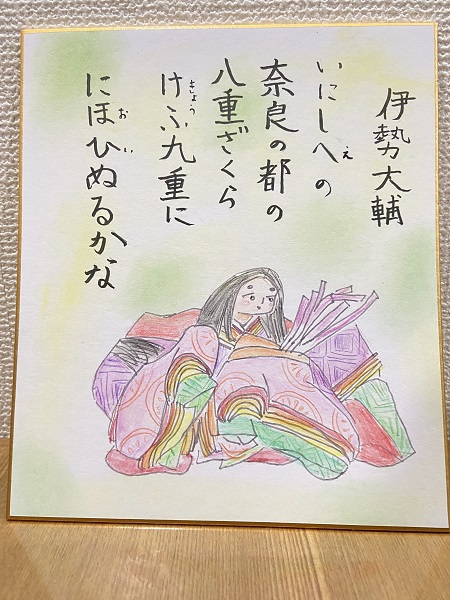 伊勢大輔
いにしへの
え
奈良の都の
八重ざくら
けふ九重に
きょう
にほひぬるかな
おい